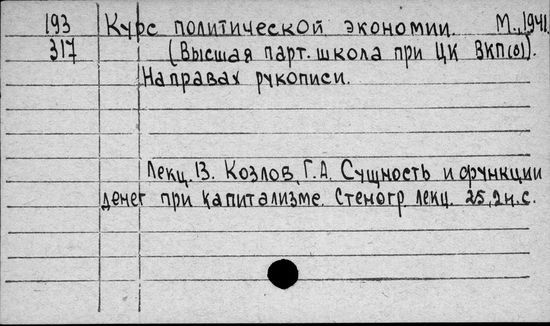 193 Курс политической экономии. М., 1941.
317 (Высшая парт. школа при ЦК ВКП(б)).
На правах рукописи.
Лекц. 13. Козлов, Г.А. Сущность и функции
денег при капитализме. Стеногр лекц. 25, 2 н. с.